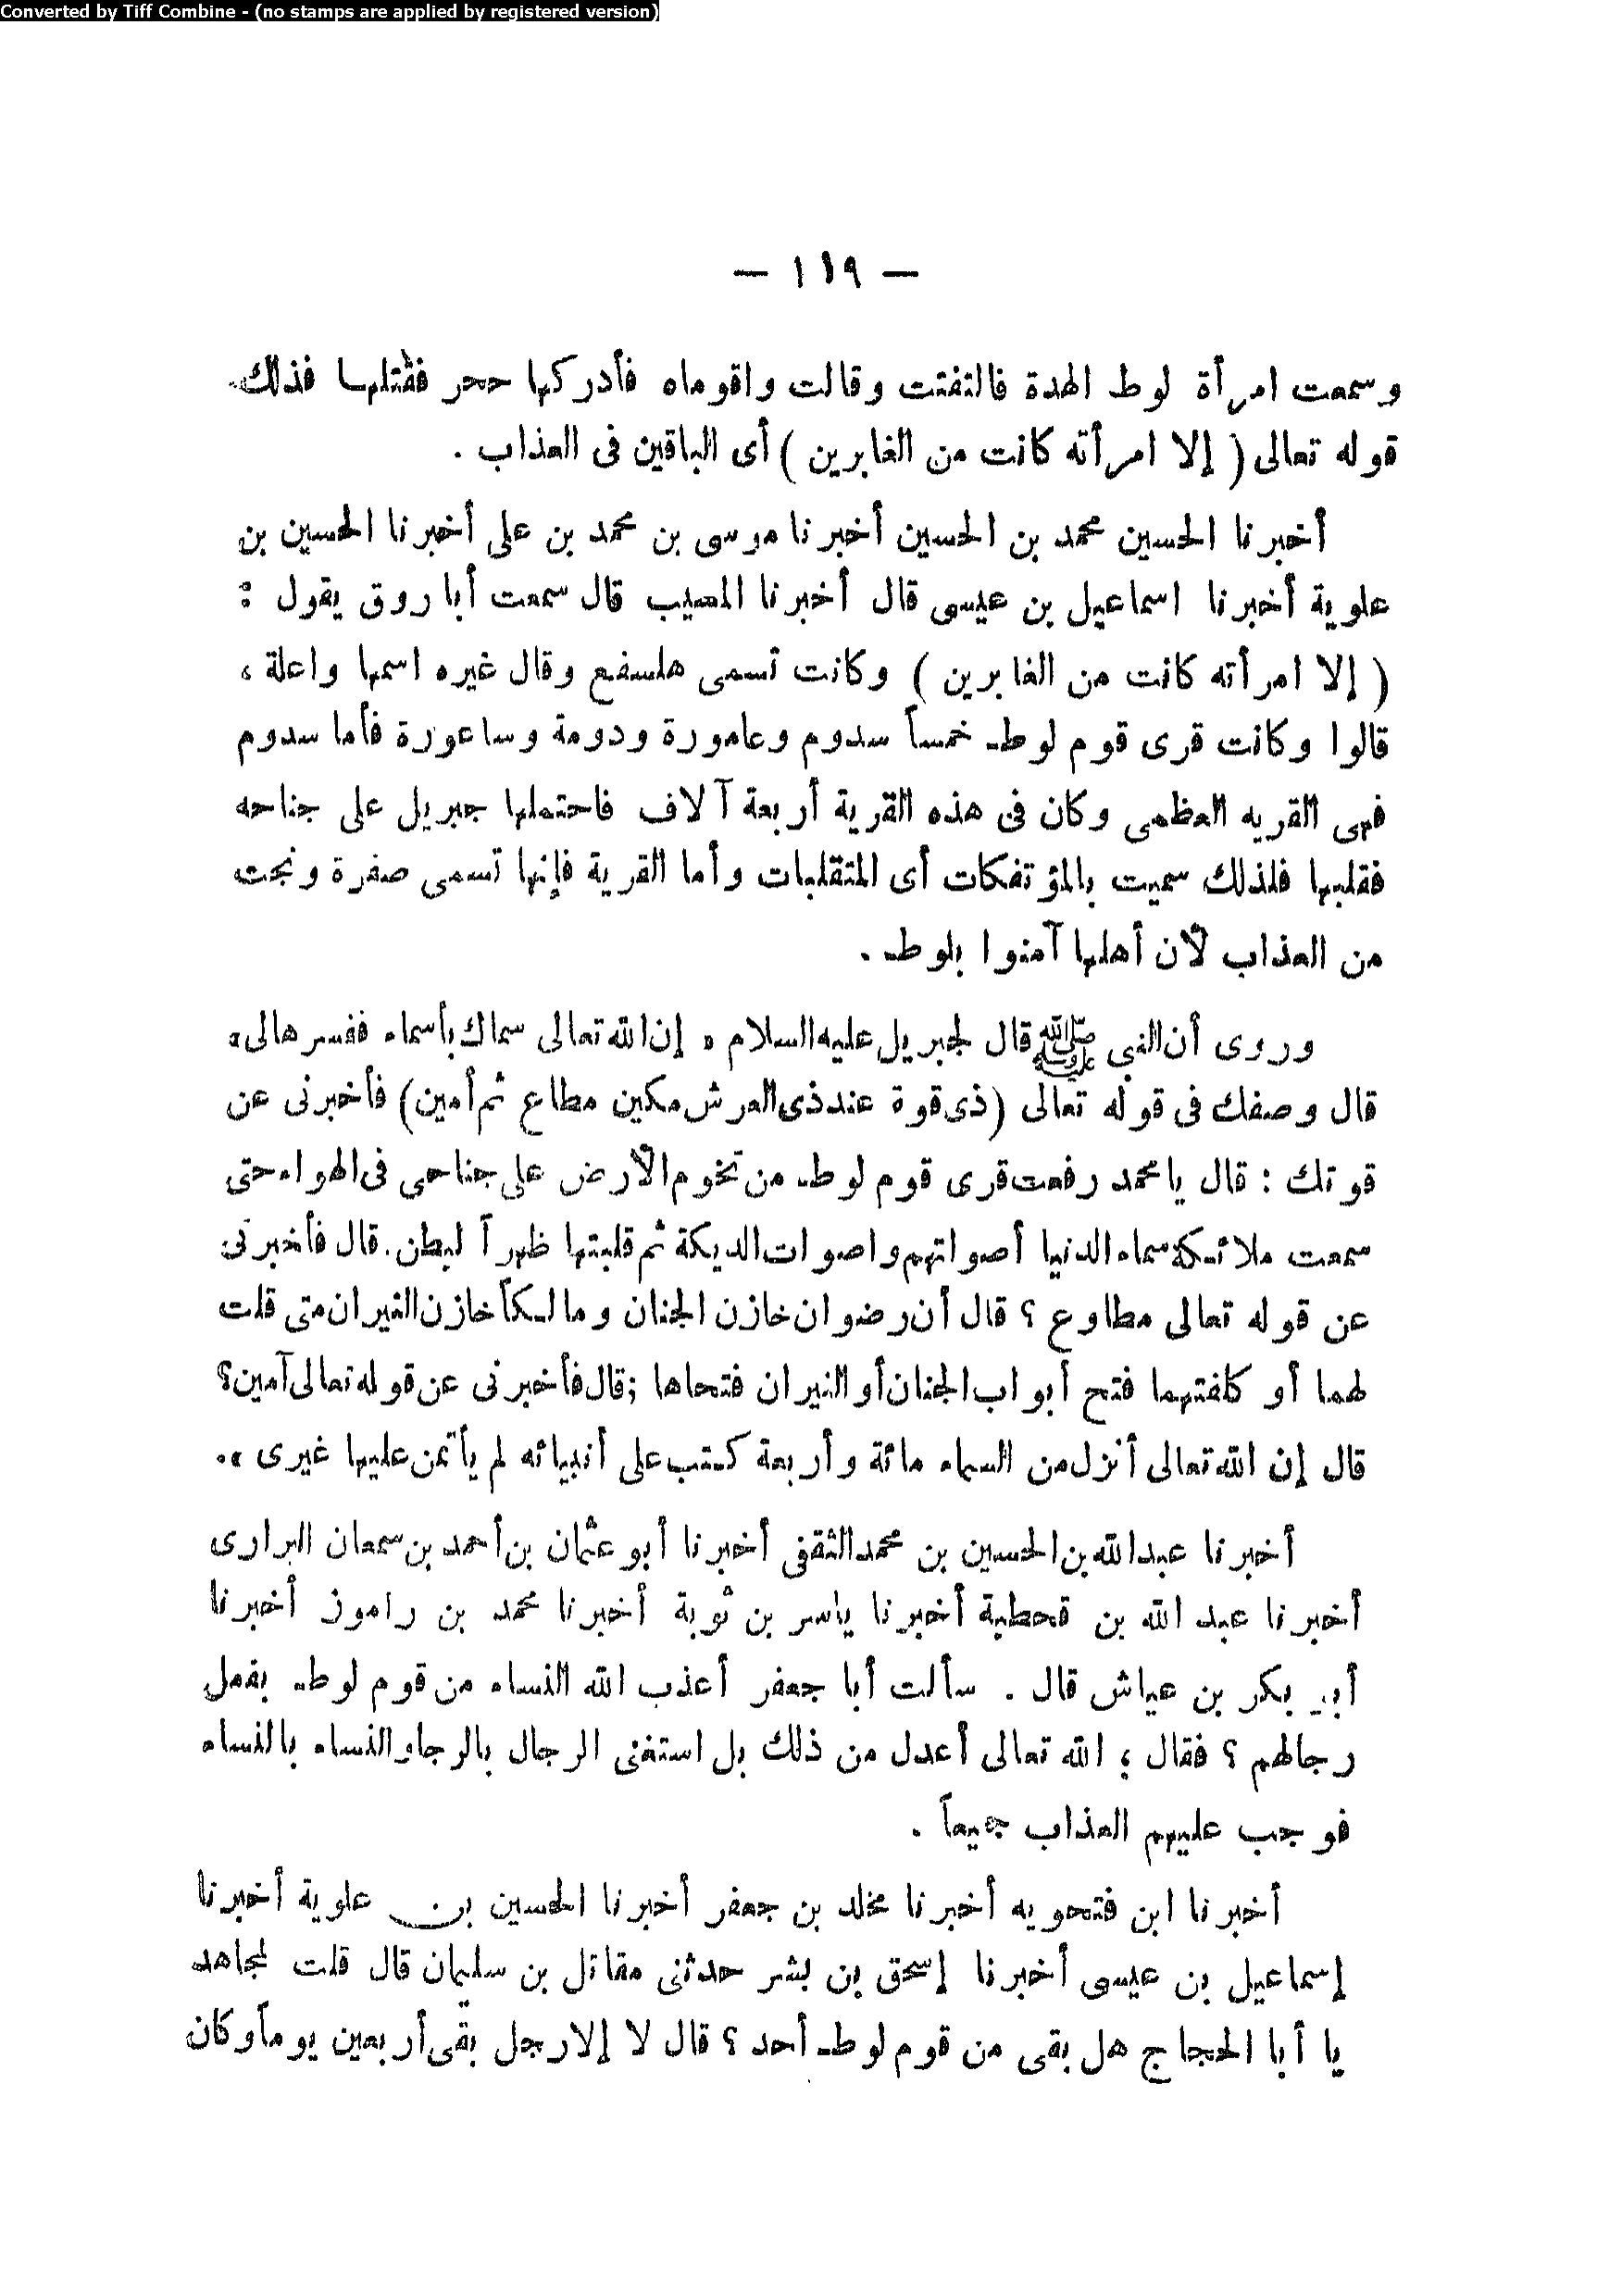 Converted by Tiff Combine - (no stamps are applied by registered version)
— ١١٩ —
وسمعت امرأة لوط الهدة فالتفتت وقالت واقوماه فأدركها حجر فقتلها فذلك
قوله تعالى ( إلا امرأته كانت من الغابرين ) أى الباقين فى العذاب .
أخبرنا الحسين محمد بن الحسين أخبرنا موسى بن محمد بن على أخبرنا الحسين بن
علوية أخبرنا اسماعيل بن عيسى قال أخبرنا المصيب قال سمعت أبا روق يقول :
( إلا امرأته كانت من الغابرين ) وكانت تسمى هلسفع وقال غيره اسمها واعلة ،
قالوا وكانت قرى قوم لوط خمساً سدوم وعامورة ودومة وساعورة فأما سدوم
فهى القريه العظمى وكان فى هذه القرية أربعة آلاف فاحتملها جبريل على جناحه
فقلبها فلذلك سميت بالمؤتفكات أى المتقلبات وأما القرية فإنها تسمى صفرة ونجت
من العذاب لأن أهلها آمنوا بلوط .
وروى أن النبى ﷺ قال لجبريل عليه السلام « إن الله تعالى سماك بأسماء ففسرها لى»
قال وصفك فى قوله تعالى (ذى قوة عند ذى العرش مكين مطاع ثم أمين) فأخبرنى عن
قوتك : قال يا محمد رفعت قرى قوم لوط من تخوم الأرض على جناحى فى الهواء حتى
سمعت ملائكة سماء الدنيا أصواتهم واصوات الديكة ثم قلبتها ظهراً لبطن. قال فأخبرنى
عن قوله تعالى مطاوع ؟ قال أن رضوان خازن الجنان ومالكاً خازن النيران متى قلت
لهما أو كلفتهما فتح أبواب الجنان أو النيران فتحاها ; قال فأخبرنى عن قوله تعالى آمين؟
قال إن الله تعالى أنزل من السماء مائة وأربعة كتب على أنبيائه لم يأتمن عليها غيرى ».
أخبرنا عبد الله بن الحسين بن محمد الثقفى أخبرنا أبو عثمان بن أحمد بن سمعان البرارى
أخبرنا عبد الله بن قحطبة أخبرنا ياسر بن ثوبة أخبرنا محمد بن راموز أخبرنا
أبو بكر بن عياش قال . سألت أبا جعفر أعذب الله النساء من قوم لوط بفعل
رجالهم ؟ فقال ؛ الله تعالى أعدل من ذلك بل استغنى الرجال بالرجا والنساء بالنساء
فوجب عليهم العذاب جميعاً .
أخبرنا ابن فتحويه أخبرنا مخلد بن جعفر أخبرنا الحسين بن علوية أخبرنا
إسماعيل بن عيسى أخبرنا إسحق بن بشر حدثنى مقاتل بن سليمان قال قلت لمجاهد
يا أبا الحجاج هل بقى من قوم لوط أحد ؟ قال لا إلا رجل بقى أربعين يوماً وكان